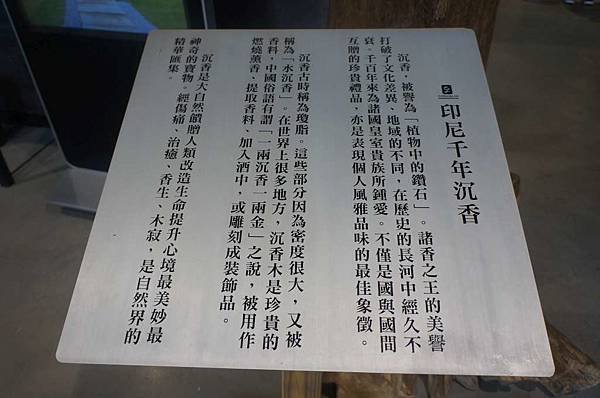 印尼千年沉香
沉香，被譽為「植物中的鑽石」。諸香之王的美譽
打破了文化差異、地域的不同，在歷史的長河中經久不
衰。千百年來為諸國皇室貴族所鍾愛。不僅是國與國間
互贈的珍貴禮品，亦是表現個人風雅品味的最佳象徵。
沉香古時稱為瓊脂。這些部分因為密度很大，又被
稱為「水沉香」。在世界上很多地方，沉香木是珍貴的
香料，中國俗語有謂「一兩沉香一兩金」之說，被用作
燃燒薰香、提取香料、加入酒中，或雕刻成裝飾品。
沉香是大自然饋贈人類改造生命提升心境最美妙最
神奇的寶物。經傷痛、治癒、香生、木寂，是自然界的
精華匯集。